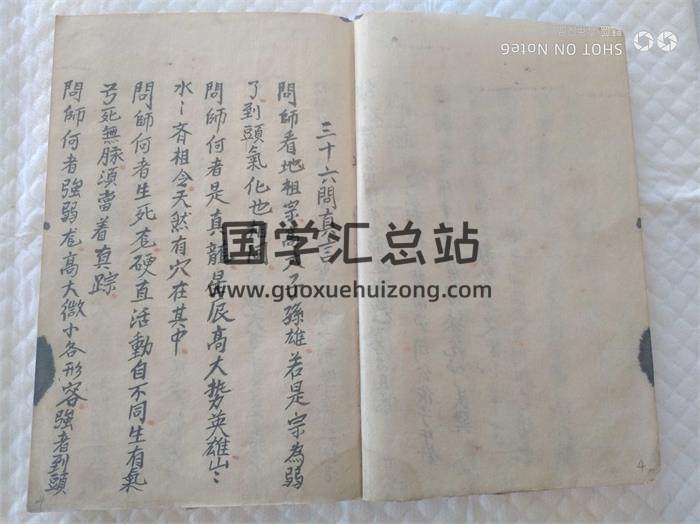 三十六問真言
問師看地祖宗高大子孫雄若是宗為弱
了到頭氣化也
問師何者是真龍星辰高大势英雄山〻
水〻斉祖令天然有穴在其中
問師何者生死龙硬直活動自不同生有氣
兮死無脉須當着真踪
問師何者強弱龙高大微小各形容強者到頭
国学汇总站
www.guoxuehuizong.com
SHOT ON Note6
4